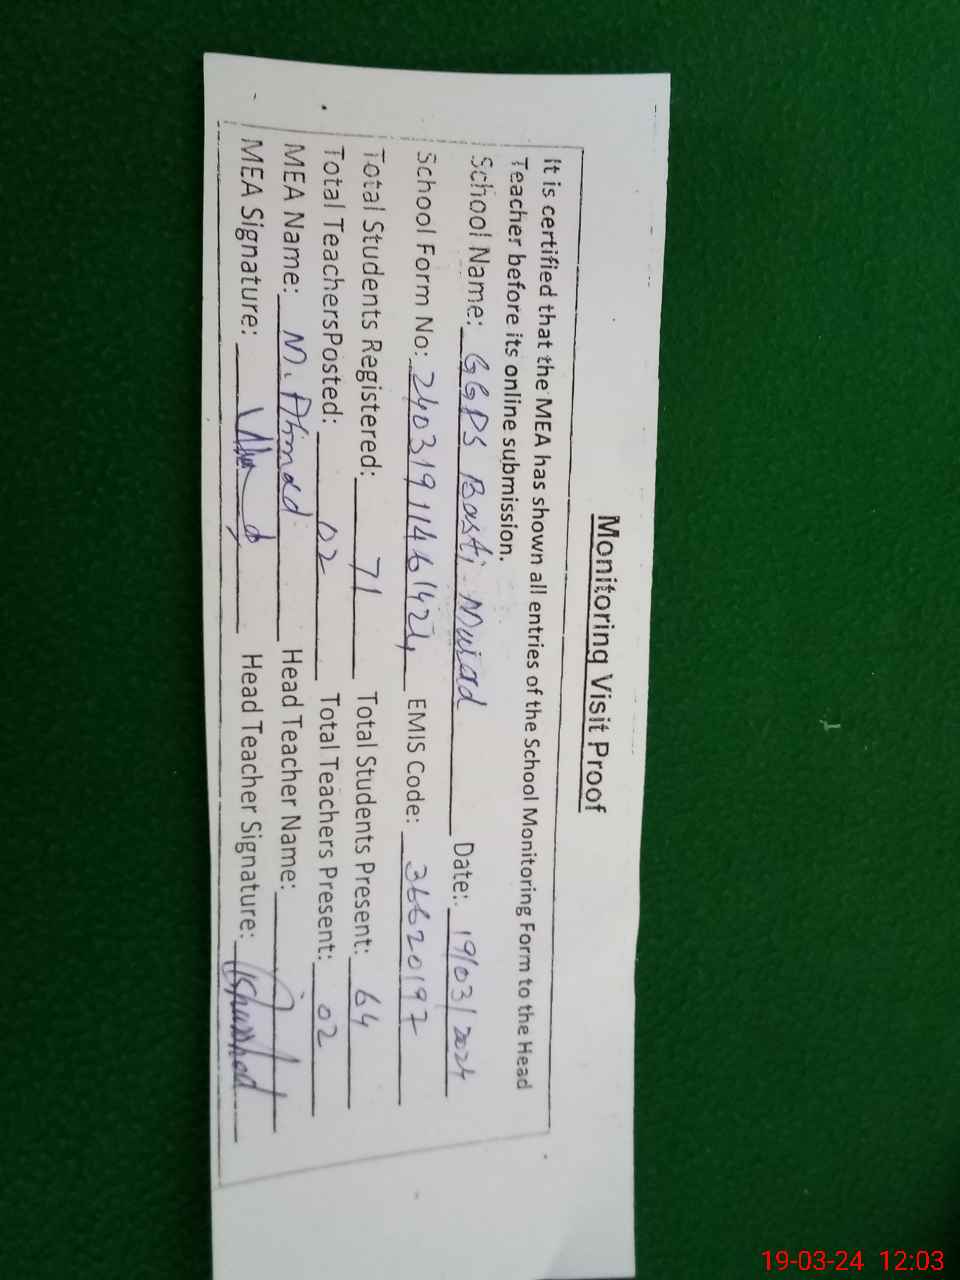 Monitoring Visit Proof
It is certified that the MEA has shown all entries of the School Monitoring Form to the Head
Teacher before its online submission.
School Name: GGPS Basti Murad Date: 19/03/2024
School Form No: 24031911461424 EMIS Code: 36620197
Total Students Registered: 71 Total Students Present: 64
Total TeachersPosted: 02 Total Teachers Present: 02
MEA Name: M. Ahmad Head Teacher Name:
MEA Signature: Head Teacher Signature:
19-03-24 12:03